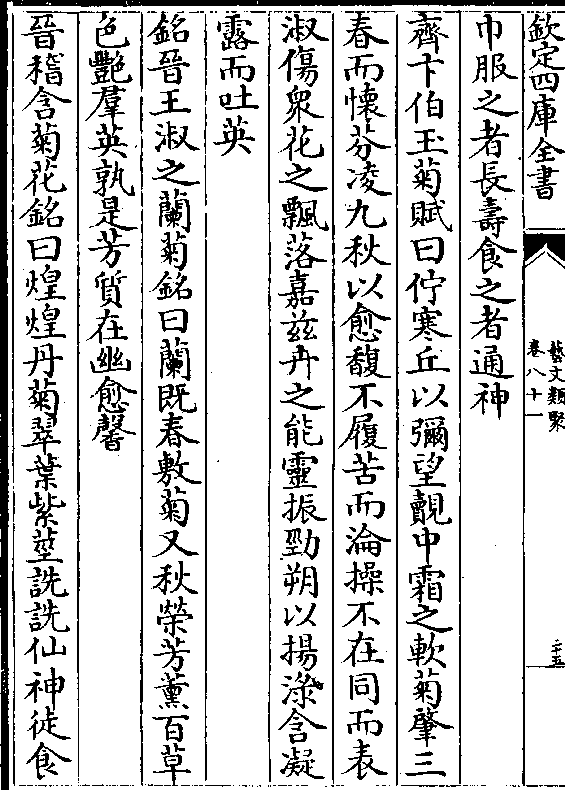 欽定四庫全書
藝文類聚
卷八十一
二十五
巾服之者長壽食之者通神
齊卞伯玉菊賦曰佇寒丘以彌望覿中霜之軟菊肇三
春而懷芬凌九秋以愈馥不履苦而淪操不在同而表
淑傷衆花之飄落嘉兹卉之能靈振勁朔以揚渌含凝
露而吐英
銘晉王淑之蘭菊銘曰蘭既春敷菊又秋榮芳薰百草
色艷羣英孰是芳質在幽愈馨
晉稽含菊花銘曰煌煌丹菊翠葉紫莖詵詵仙神徒食